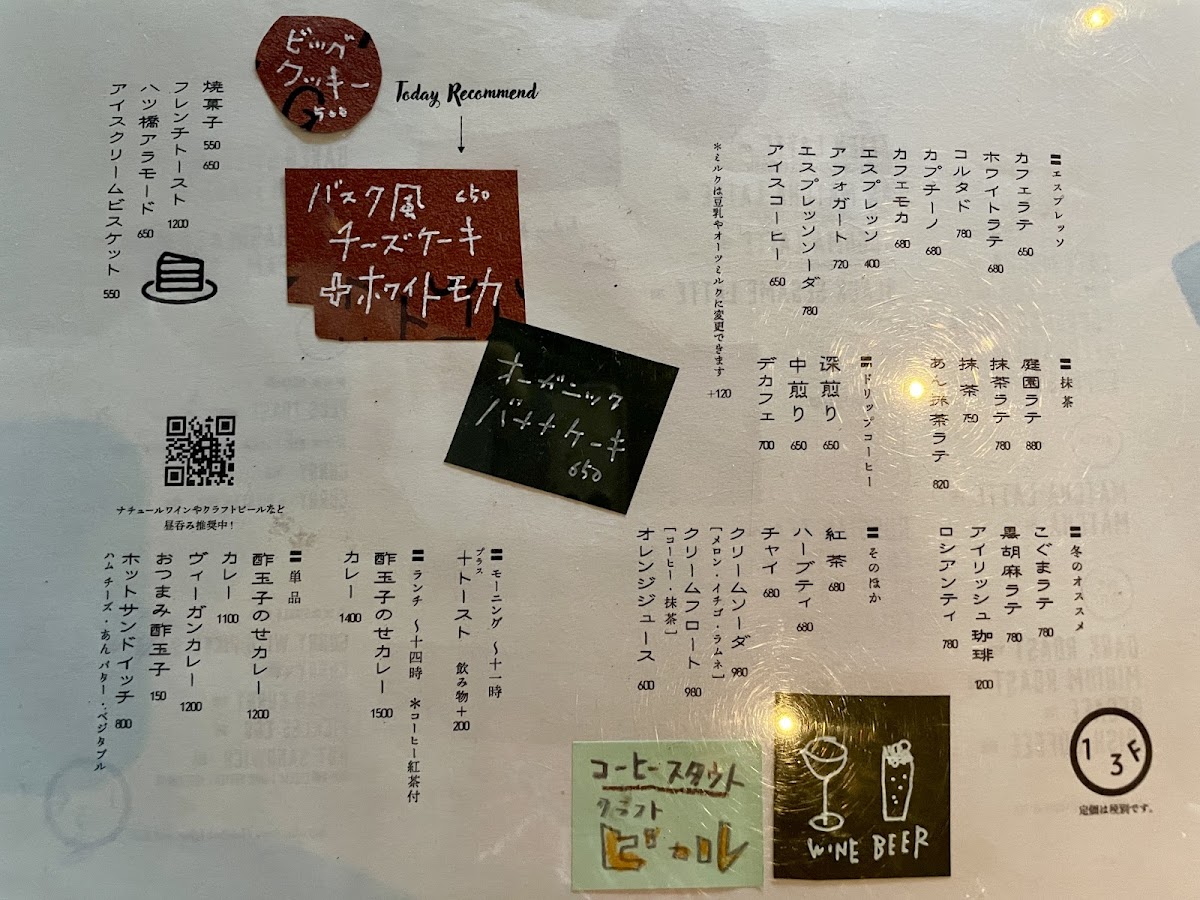 エスプレッソ
カフェラテ 650
ホワイトラテ 680
コルタド 780
カプチーノ 680
カフェモカ 680
エスプレッソ 400
アフォガート 720
エスプレッソソーダ 780
アイスコーヒー 650
*ミルクは豆乳やオーツミルクに変更できます +120
抹茶
庭園ラテ 880
抹茶ラテ 780
抹茶 750
あん抹茶ラテ 820
ドリップコーヒー
深煎り 650
中煎り 650
デカフェ 700
冬のオススメ
こぐまラテ 780
黒胡麻ラテ 780
アイリッシュ珈琲 1200
ロシアンティ 780
そのほか
紅茶 680
ハーブティ 680
チャイ 680
クリームソーダ 980
[メロン・イチゴ・ラムネ]
クリームフロート 980
[コーヒー・抹茶]
オレンジジュース 600
13F
定価は税別です。
WINE BEER
コーヒースタウト
クラフト
ビール
ビッグ
クッキー
500
Today Recommend
バスク風 650
チーズケーキ
ホワイトモカ
オーガニック
バナナケーキ
650
焼菓子 550 650
フレンチトースト 1200
八ツ橋アラモード 650
アイスクリームビスケット 550
ナチュールワインやクラフトビールなど
昼呑み推奨中!
モーニング 〜十一時
プラス
十トースト 飲み物+200
ランチ 〜十四時 *コーヒー紅茶付
酢玉子のせカレー 1500
カレー 1400
単品
酢玉子のせカレー 1200
カレー 1100
ヴィーガンカレー 1200
おつまみ酢玉子 150
ホットサンドイッチ 800
ハムチーズ・あんバター・ベジタブル